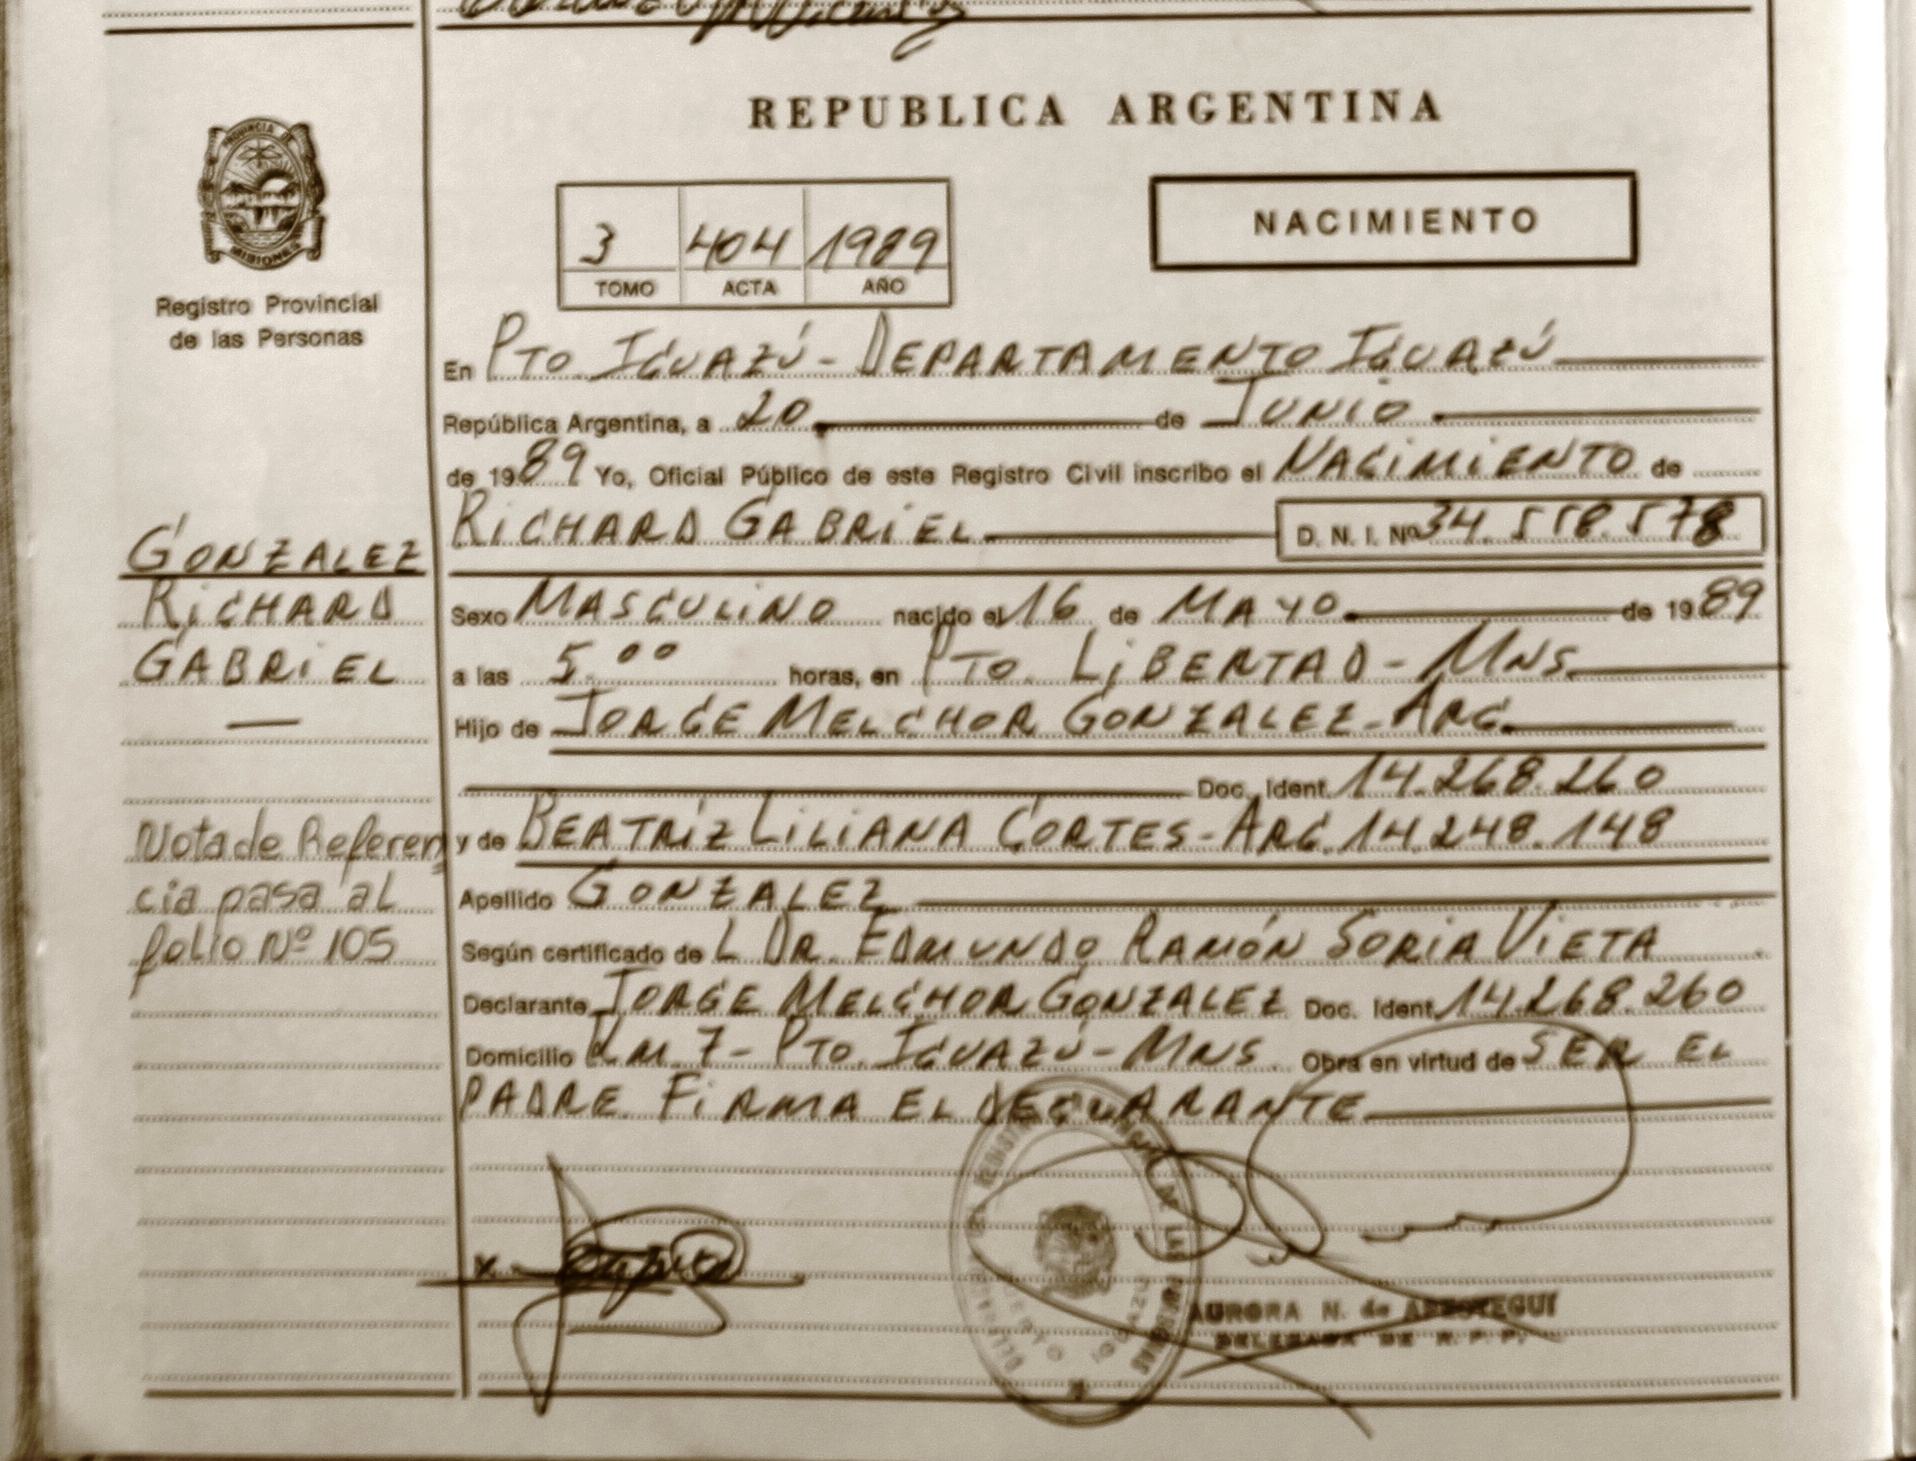 REPUBLICA ARGENTINA
PROVINCIA DE
MISIONES
Registro Provincial
de las Personas
3 404 1989
TOMO ACTA AÑO
NACIMIENTO
En PTO. IGUAZÚ - DEPARTAMENTO IGUAZÚ
República Argentina, a 20 de JUNIO
de 1989 Yo, Oficial Público de este Registro Civil inscribo el NACIMIENTO de
RICHARD GABRIEL D. N. I. Nº 34.558.578
Sexo MASCULINO nacido el 16 de MAYO de 1989
a las 5.00 horas, en PTO. LIBERTAD - MNS.
Hijo de JORGE MELCHOR GONZALEZ - ARG.
Doc. Ident. 14.268.260
y de BEATRIZ LILIANA CORTES - ARG. 14.248.148
Apellido GONZALEZ
Según certificado de L DR. EDMUNDO RAMÓN SORIA VIETA
Declarante JORGE MELCHOR GONZALEZ Doc. Ident. 14.268.260
Domicilio KM. 7 - PTO. IGUAZÚ - MNS. Obra en virtud de SER EL
PADRE. FIRMA EL DECLARANTE
GONZALEZ
RICHARD
GABRIEL
Nota de Referen
cia pasa al
folio Nº 105
x
AURORA N. de
DELEGADA DE R. P. P.